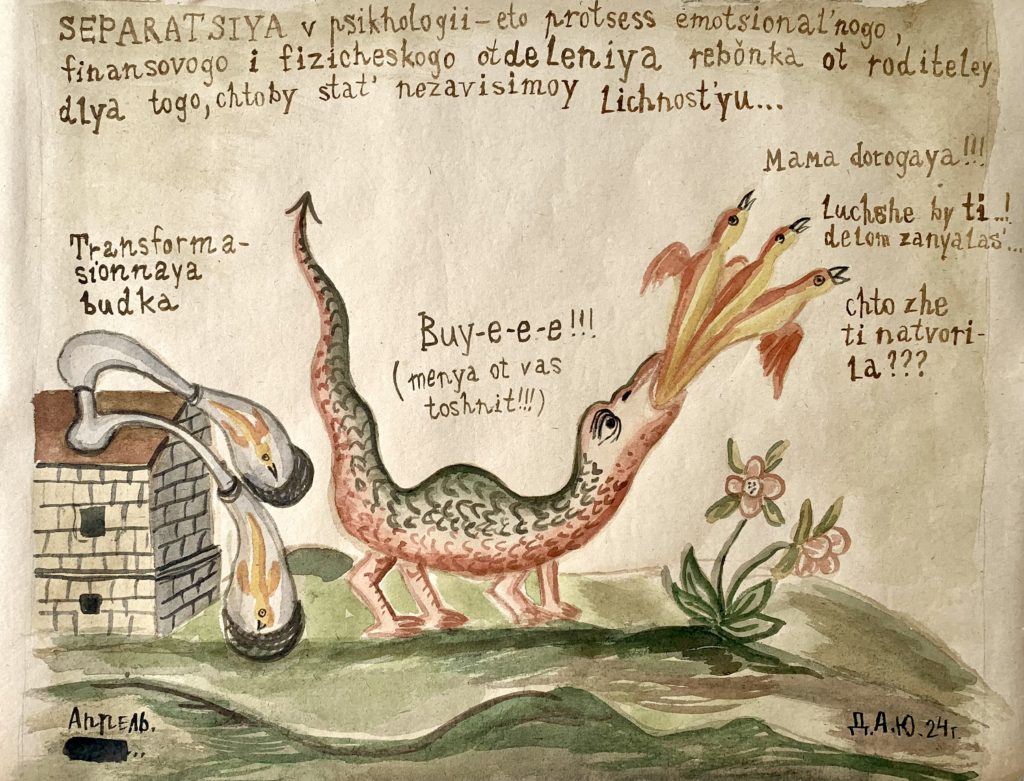 SEPARATSIYA v psikhologii - eto protsess emotsional'nogo,
finansovogo i fizicheskogo otdeleniya rebönka ot roditeley
dlya togo, chtoby stat' nezavisimoy lichnost'yu...
Mama dorogaya!!!
luchshe by ti...!
delom zanyalas'...
chto zhe
ti natvori-
la???
Transforma-
sionnaya
budka
Buy-e-e-e!!!
(menya ot vas
toshnit!!!)
Апрель.
Д.А.Ю. 24г